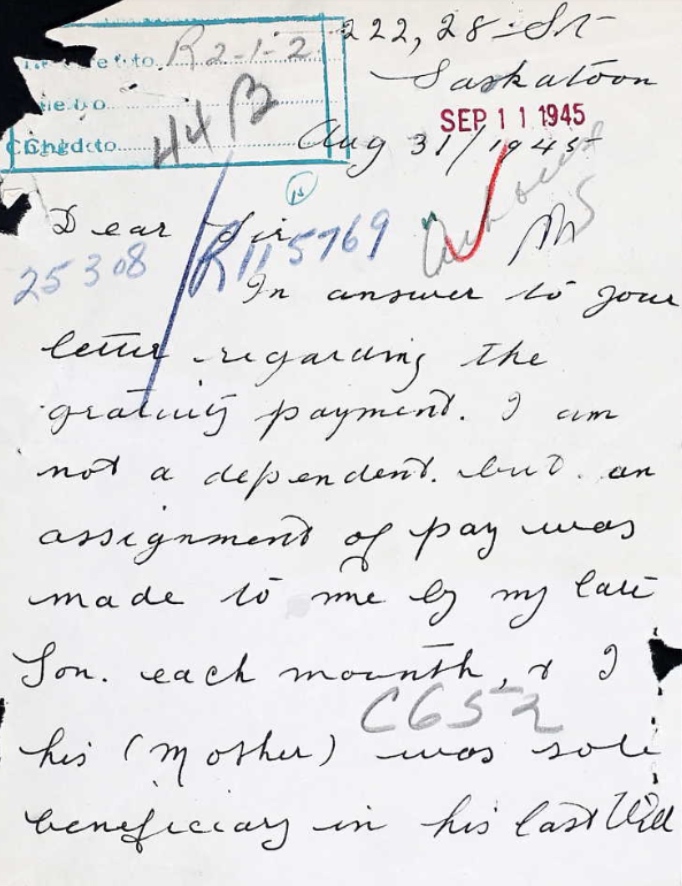 222, 28 - St
Saskatoon
R2-1-2
44B
SEP 11 1945
Aug 31/1945
Dear Sir
25308
R115769
In answer to your
letter regarding the
gratuity payment. I am
not a dependent. but. an
assignment of pay was
made to me by my late
Son. each mounth, & I
C652
his (Mother) was sole
beneficiary in his last Will